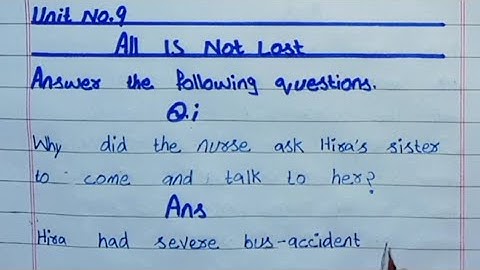 Unit No.9
All Is Not Lost
Answer the following questions.
Q.i
Why did the nurse ask Hira's sister
to come and talk to her?
Ans
Hira had severe bus-accident